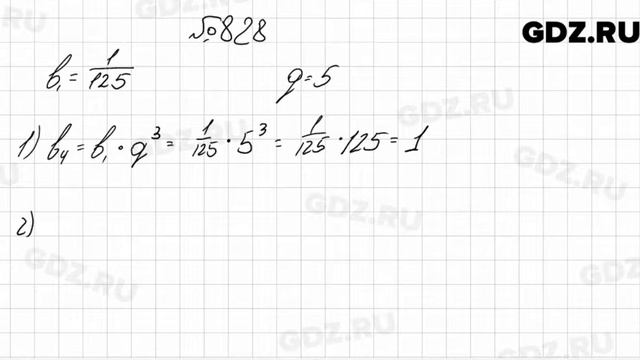 №828
GDZ.RU
b₁ = 1/125 q = 5
1) b₄ = b₁ · q³ = 1/125 · 5³ = 1/125 · 125 = 1
2)
GDZ.RU
GDZ.RU
GDZ.RU
GDZ.RU
GDZ.RU
GDZ.RU